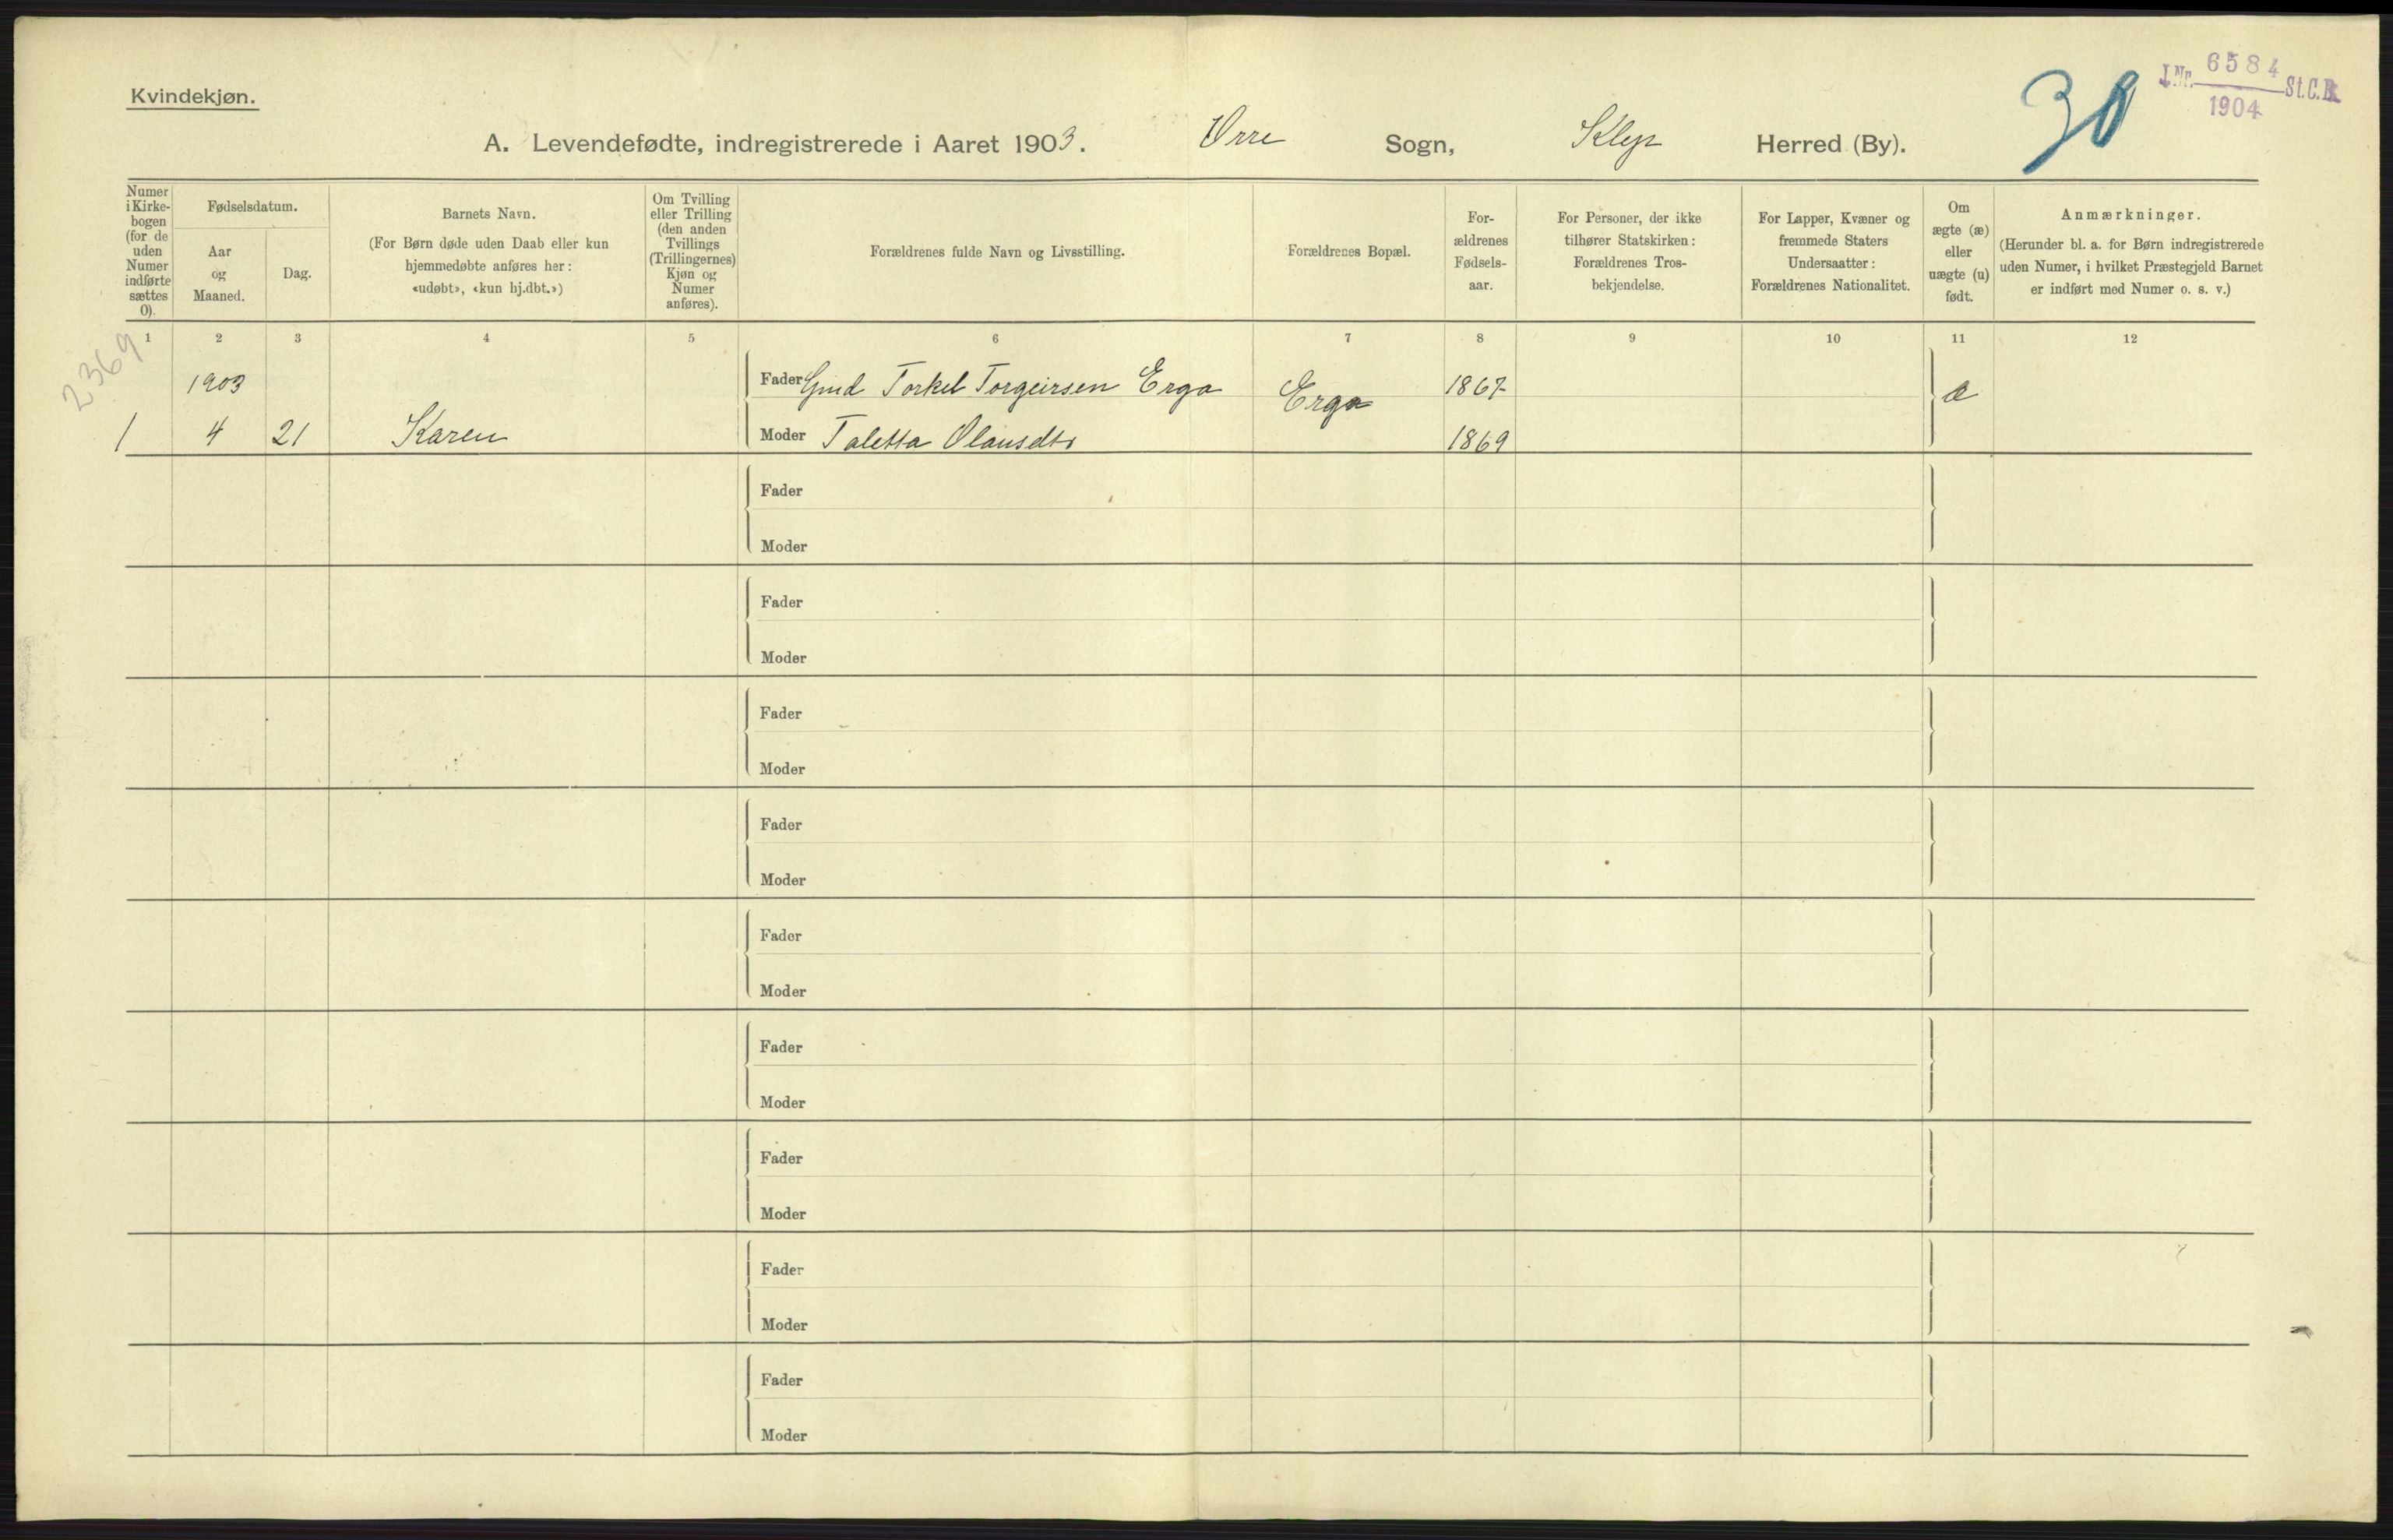 Kvindekjøn.
J.Nr. 6584 St.C.B.
1904
30
A. Levendefødte, indregistrerede i Aaret 1903. Orre Sogn, Klep Herred (By).
Numer i Kirke-bogen (for de uden Numer indførte sættes 0).
Fødselsdatum.
Aar og Maaned.
Dag.
Barnets Navn.
(For Børn døde uden Daab eller kun
hjemmedøbte anføres her:
«udøbt», «kun hj.dbt.»)
Om Tvilling
eller Trilling
(den anden
Tvillings
(Trillingernes)
Kjøn og
Numer
anføres).
Forældrenes fulde Navn og Livsstilling.
Forældrenes Bopæl.
For-
ældrenes
Fødsels-
aar.
For Personer, der ikke
tilhører Statskirken:
Forældrenes Tros-
bekjendelse.
For Lapper, Kvæner og
fremmede Staters
Undersaatter:
Forældrenes Nationalitet.
Om
ægte (æ)
eller
uægte (u)
født.
Anmærkninger.
(Herunder bl. a. for Børn indregistrerede
uden Numer, i hvilket Præstegjeld Barnet
er indført med Numer o. s. v.)
1 2 3 4 5 6 7 8 9 10 11 12
2369
1903 Fader Gmd Torkel Torgeirsen Erga Erga 1867 æ
1 4 21 Karen Moder Taletta Olausdtr 1869
Fader
Moder
Fader
Moder
Fader
Moder
Fader
Moder
Fader
Moder
Fader
Moder
Fader
Moder
Fader
Moder
Fader
Moder